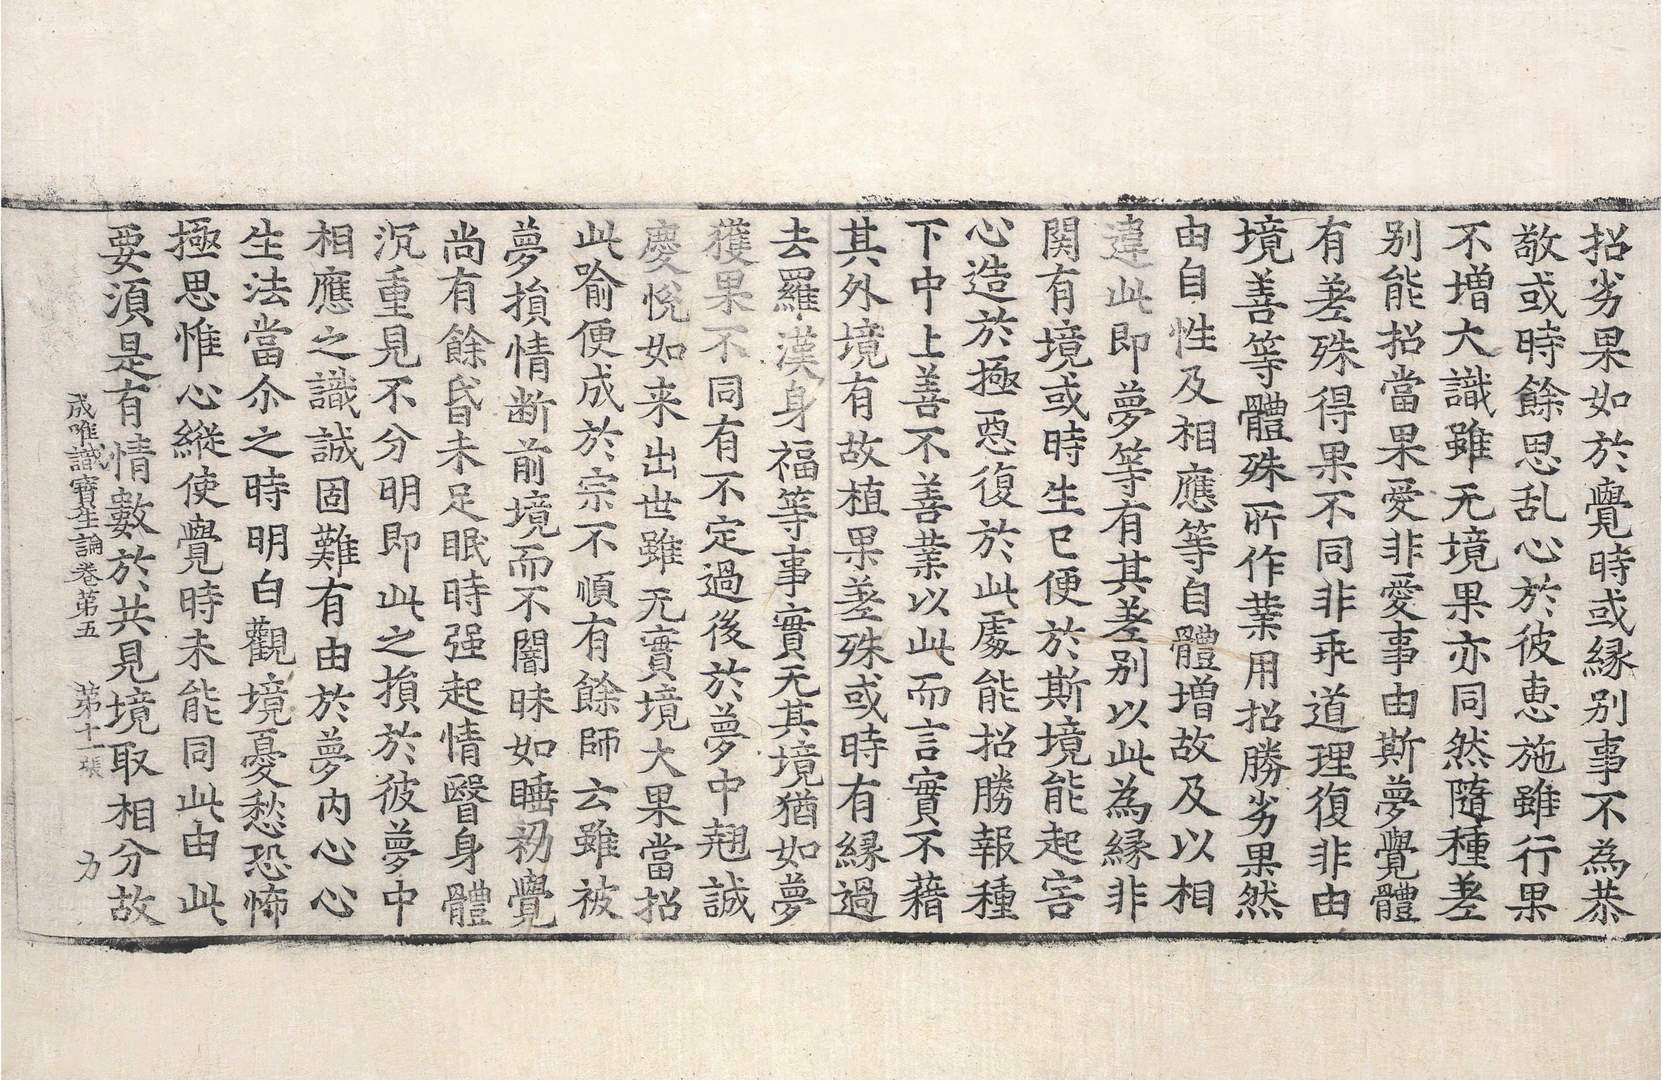 招劣果如於覺時或縁别事不為恭
敬或時餘思乱心於彼恵施雖行果
不增大識雖无境果亦同然隨種差
别能招當果愛非愛事由斯夢覺體
有差殊得果不同非乖道理復非由
境善等體殊所作業用招勝劣果然
由自性及相應等自體增故及以相
違此即夢等有其差别以此為縁非
関有境或時生已便於斯境能起害
心造於極惡復於此處能招勝報種
下中上善不善業以此而言實不藉
其外境有故植果差殊或時有縁過
去羅漢身福等事實无其境猶如夢
獲果不同有不定過後於夢中翹誠
慶悅如来出世雖无實境大果當招
此喻便成於宗不順有餘師云雖被
夢損情断前境而不闇昧如睡初覺
尚有餘昏未足眠時强起情瞖身體
沉重見不分明即此之損於彼夢中
相應之識誠固難有由於夢内心心
生法當尒之時明白觀境憂愁恐怖
極思惟心縱使覺時未能同此由此
要湏是有情數於共見境取相分故
成唯識寶生論卷第五 第十一張 力